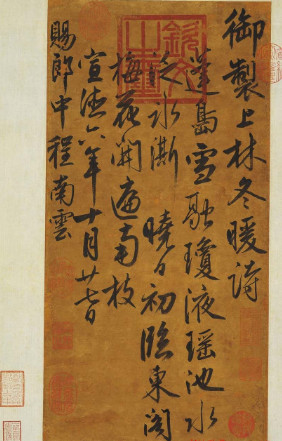 御製上林冬暖詩
蓬島雪融瓊液瑤池水
泛冰澌 曉日初臨東閣
梅花開遍南枝
宣德六年十月廿七日
賜郎中程南雲